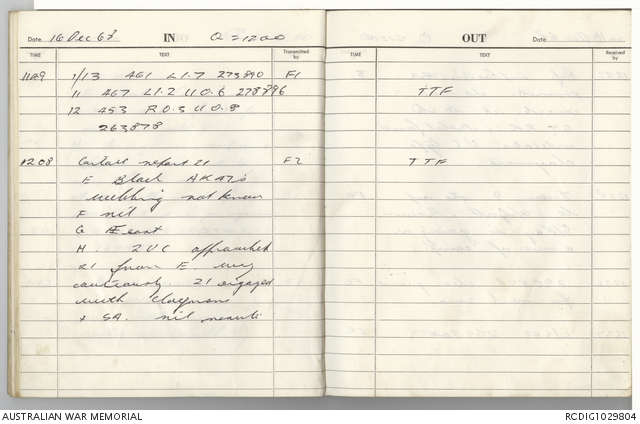 Date 16 Dec 67 IN Q = 1200
TIME TEXT Transmitted by
1129 1/13 461 L1.7 273890 F1
11 467 L1.2 U0.6 278896
12 453 R0.3 U0.8
263878
1208 Contact report 21 F2
E Black AK47s
webbing not known
F nil
G E east
H 2 VC approached
21 from E very
cautiously 21 engaged
with claymores
+ SA. nil results
OUT Date
TIME TEXT Received by
TTF
TTF
AUSTRALIAN WAR MEMORIAL
RCDIG1029804